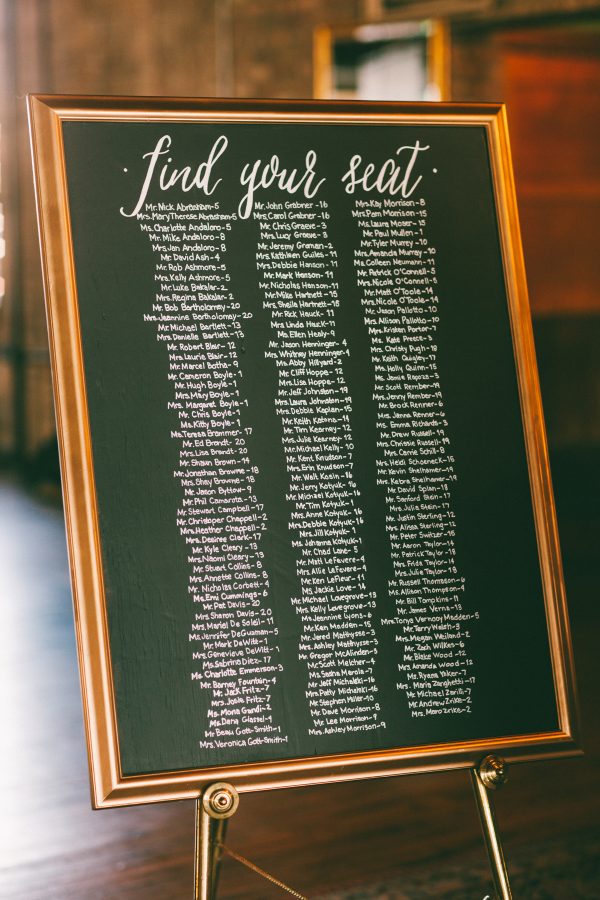 find your seat
Mr. Nick Abraham-5
Mrs. Mary Therese Abraham-5
Ms. Charlotte Andaloro-8
Mr. Mike Andaloro-8
Mrs. Jan Andaloro-8
Mr. David Ash-4
Mr. Rob Ashmore-5
Mrs. Kelly Ashmore-5
Mr. Luke Bakalar-2
Mrs. Regina Bakalar-2
Mr. Bob Bartholomay-20
Mrs. Jeannine Bartholomay-20
Mr. Michael Bartlett-13
Mrs. Danielle Bartlett-13
Mr. Robert Blair-12
Mrs. Laurie Blair-12
Mr. Marcel Botha-9
Mr. Cameron Boyle-1
Mr. Hugh Boyle-1
Mrs. Mary Boyle-1
Mrs. Margaret Boyle-1
Mr. Chris Boyle-1
Ms. Kitty Boyle-1
Ms. Teresa Brammer-17
Mr. Ed Brandt-20
Mrs. Lisa Brandt-20
Mr. Shawn Brown-14
Mr. Jonathan Browne-18
Mrs. Shay Browne-18
Mr. Jason Byttow-9
Mr. Phil Camarota-13
Mr. Stewart Campbell-17
Mr. Christoper Chappell-2
Mrs. Heather Chappell-2
Mrs. Desiree Clark-17
Mr. Kyle Cleary-13
Mrs. Naomi Cleary-13
Mr. Stuart Collins-8
Mrs. Annette Collins-8
Mr. Nicholas Corbett-4
Ms. Emi Cummings-6
Mr. Pat Davis-20
Mrs. Sharon Davis-20
Mrs. Mariel De Soleil-11
Ms. Jennifer DeGuaman-5
Mr. Mark DeWitte-1
Mrs. Genevieve DeWitte-1
Ms. Sabrina Diez-17
Ms. Charlotte Emmerson-3
Mr. Barney Fountain-4
Mr. Jack Fritz-7
Mrs. Josie Fritz-7
Ms. Mona Grandi-2
Ms. Dana Glassel-4
Mr. Beau Gott-Smith-1
Mrs. Veronica Gott-Smith-1
Mr. John Grabner-16
Mrs. Carol Grabner-16
Mr. Chris Graeve-3
Mrs. Lucy Graeve-3
Mr. Jeremy Graman-2
Ms. Kathleen Guiles-11
Mrs. Debbie Hanson-11
Mr. Mark Hanson-11
Mr. Nicholas Hanson-11
Mr. Mike Hartnett-15
Mrs. Sheila Hartnett-15
Mr. Rick Hauck-11
Mrs. Linda Hauck-11
Ms. Ellen Healy-9
Mr. Jason Henninger-4
Mrs. Whitney Henninger-4
Ms. Abby Hillyard-2
Mr. Cliff Hoppe-12
Mrs. Lisa Hoppe-12
Mr. Jeff Johnston-19
Mrs. Laura Johnston-19
Mrs. Debbie Kaplan-15
Mr. Keith Katona-14
Mr. Tim Kearney-12
Mrs. Julie Kearney-12
Mr. Michael Kelly-10
Mr. Kent Knudson-7
Mrs. Erin Knudson-7
Mr. Walt Kosin-18
Mr. Jerry Kotyuk-16
Mr. Michael Kotyuk-16
Mr. Tim Kotyuk-1
Mrs. Anne Kotyuk-16
Mrs. Debbie Kotyuk-16
Mrs. Jill Kotyuk-1
Ms. Johanna Kotyuk-1
Mr. Chad Lane-5
Mr. Matt LeFevere-4
Mrs. Allie LeFevere-4
Mr. Ken LeFleur-11
Ms. Jackie Love-14
Mr. Michael Lovegrove-13
Mrs. Kelly Lovegrove-13
Ms. Jeannine Lyons-6
Mr. Ken Madden-15
Mr. Jared Matthysse-3
Mrs. Ashley Matthysse-3
Mr. Gregor McAlinden-5
Mr. Scott Melcher-4
Ms. Sasha Merola-7
Mr. Jeff Michalski-16
Mrs. Patty Michalski-16
Mr. Stephen Miller-10
Mr. Dave Morrison-8
Mr. Lee Morrison-9
Mrs. Ashley Morrison-9
Mrs. Kay Morrison-8
Mrs. Pam Morrison-15
Ms. Laura Moser-15
Mr. Paul Mullen-1
Mr. Tyler Murray-10
Mrs. Amanda Murray-10
Ms. Colleen Neumann-11
Mr. Patrick O'Connell-5
Mrs. Nicole O'Connell-5
Mr. Matt O'Toole-14
Mrs. Nicole O'Toole-14
Mr. Jason Pallotto-10
Mrs. Allison Pallotto-10
Mrs. Kristen Porter-7
Ms. Kate Preece-3
Mrs. Christy Pugh-18
Mr. Keith Quigley-17
Ms. Holly Quinn-15
Ms. Jamie Raposa-5
Mr. Scott Rember-19
Mrs. Jenny Rember-19
Mr. Brock Renner-6
Mrs. Janna Renner-6
Ms. Emma Richards-3
Mr. Drew Russell-19
Mrs. Chrissie Russell-19
Mrs. Carrie Schill-8
Mrs. Heidi Schoeneck-16
Mr. Kevin Shelhamer-19
Mrs. Kebra Shelhamer-19
Mr. David Splan-18
Mr. Sanford Stein-17
Mrs. Julia Stein-17
Mr. Justin Sterling-12
Mrs. Alissa Sterling-12
Mr. Peter Switzer-15
Mr. Aaron Taylor-14
Mr. Patrick Taylor-18
Mrs. Frida Taylor-14
Mrs. Julie Taylor-18
Mr. Russell Thomason-6
Ms. Allison Thompson-4
Mr. Bill Tompkins-11
Mr. James Verna-13
Mrs. Tonya Vernoy Madden-5
Mr. Terry Walsh-3
Mrs. Megan Weiland-2
Mr. Zach Wilkes-6
Mr. Blake Wood-12
Mrs. Amanda Wood-12
Mr. Ryann Yaker-7
Mrs. Maria Zanghetti-17
Mr. Michael Zarilli-7
Mr. Andrew Zrike-2
Mrs. Mara Zrike-2